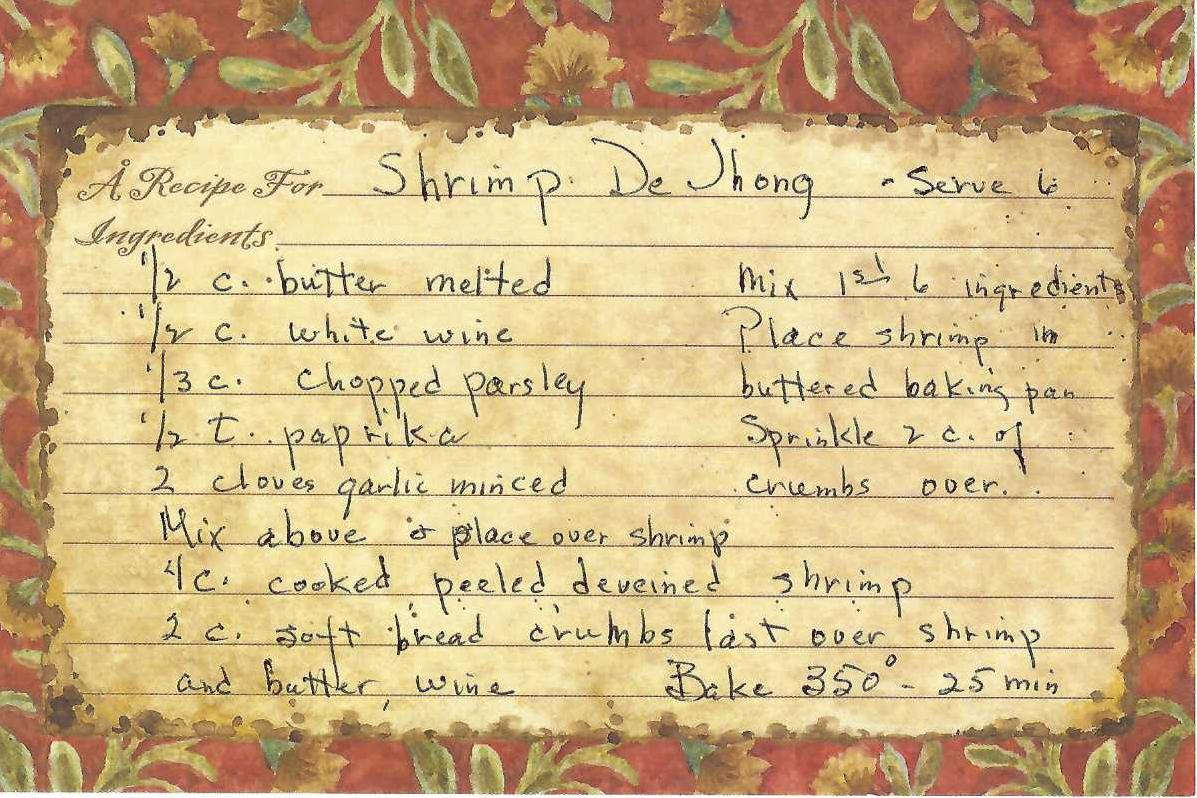 A Recipe For Shrimp De Jhong - Serve 6
Ingredients
1/2 c. butter melted
1/2 c. white wine
1/3 c. chopped parsley
1/2 t. paprika
2 cloves garlic minced
Mix 1st 6 ingredients
Place shrimp in
buttered baking pan
Sprinkle 2 c. of
crumbs over.
Mix above & place over shrimp
4 c. cooked, peeled, deveined shrimp
2 c. soft bread crumbs last over shrimp
and butter, wine Bake 350° - 25 min